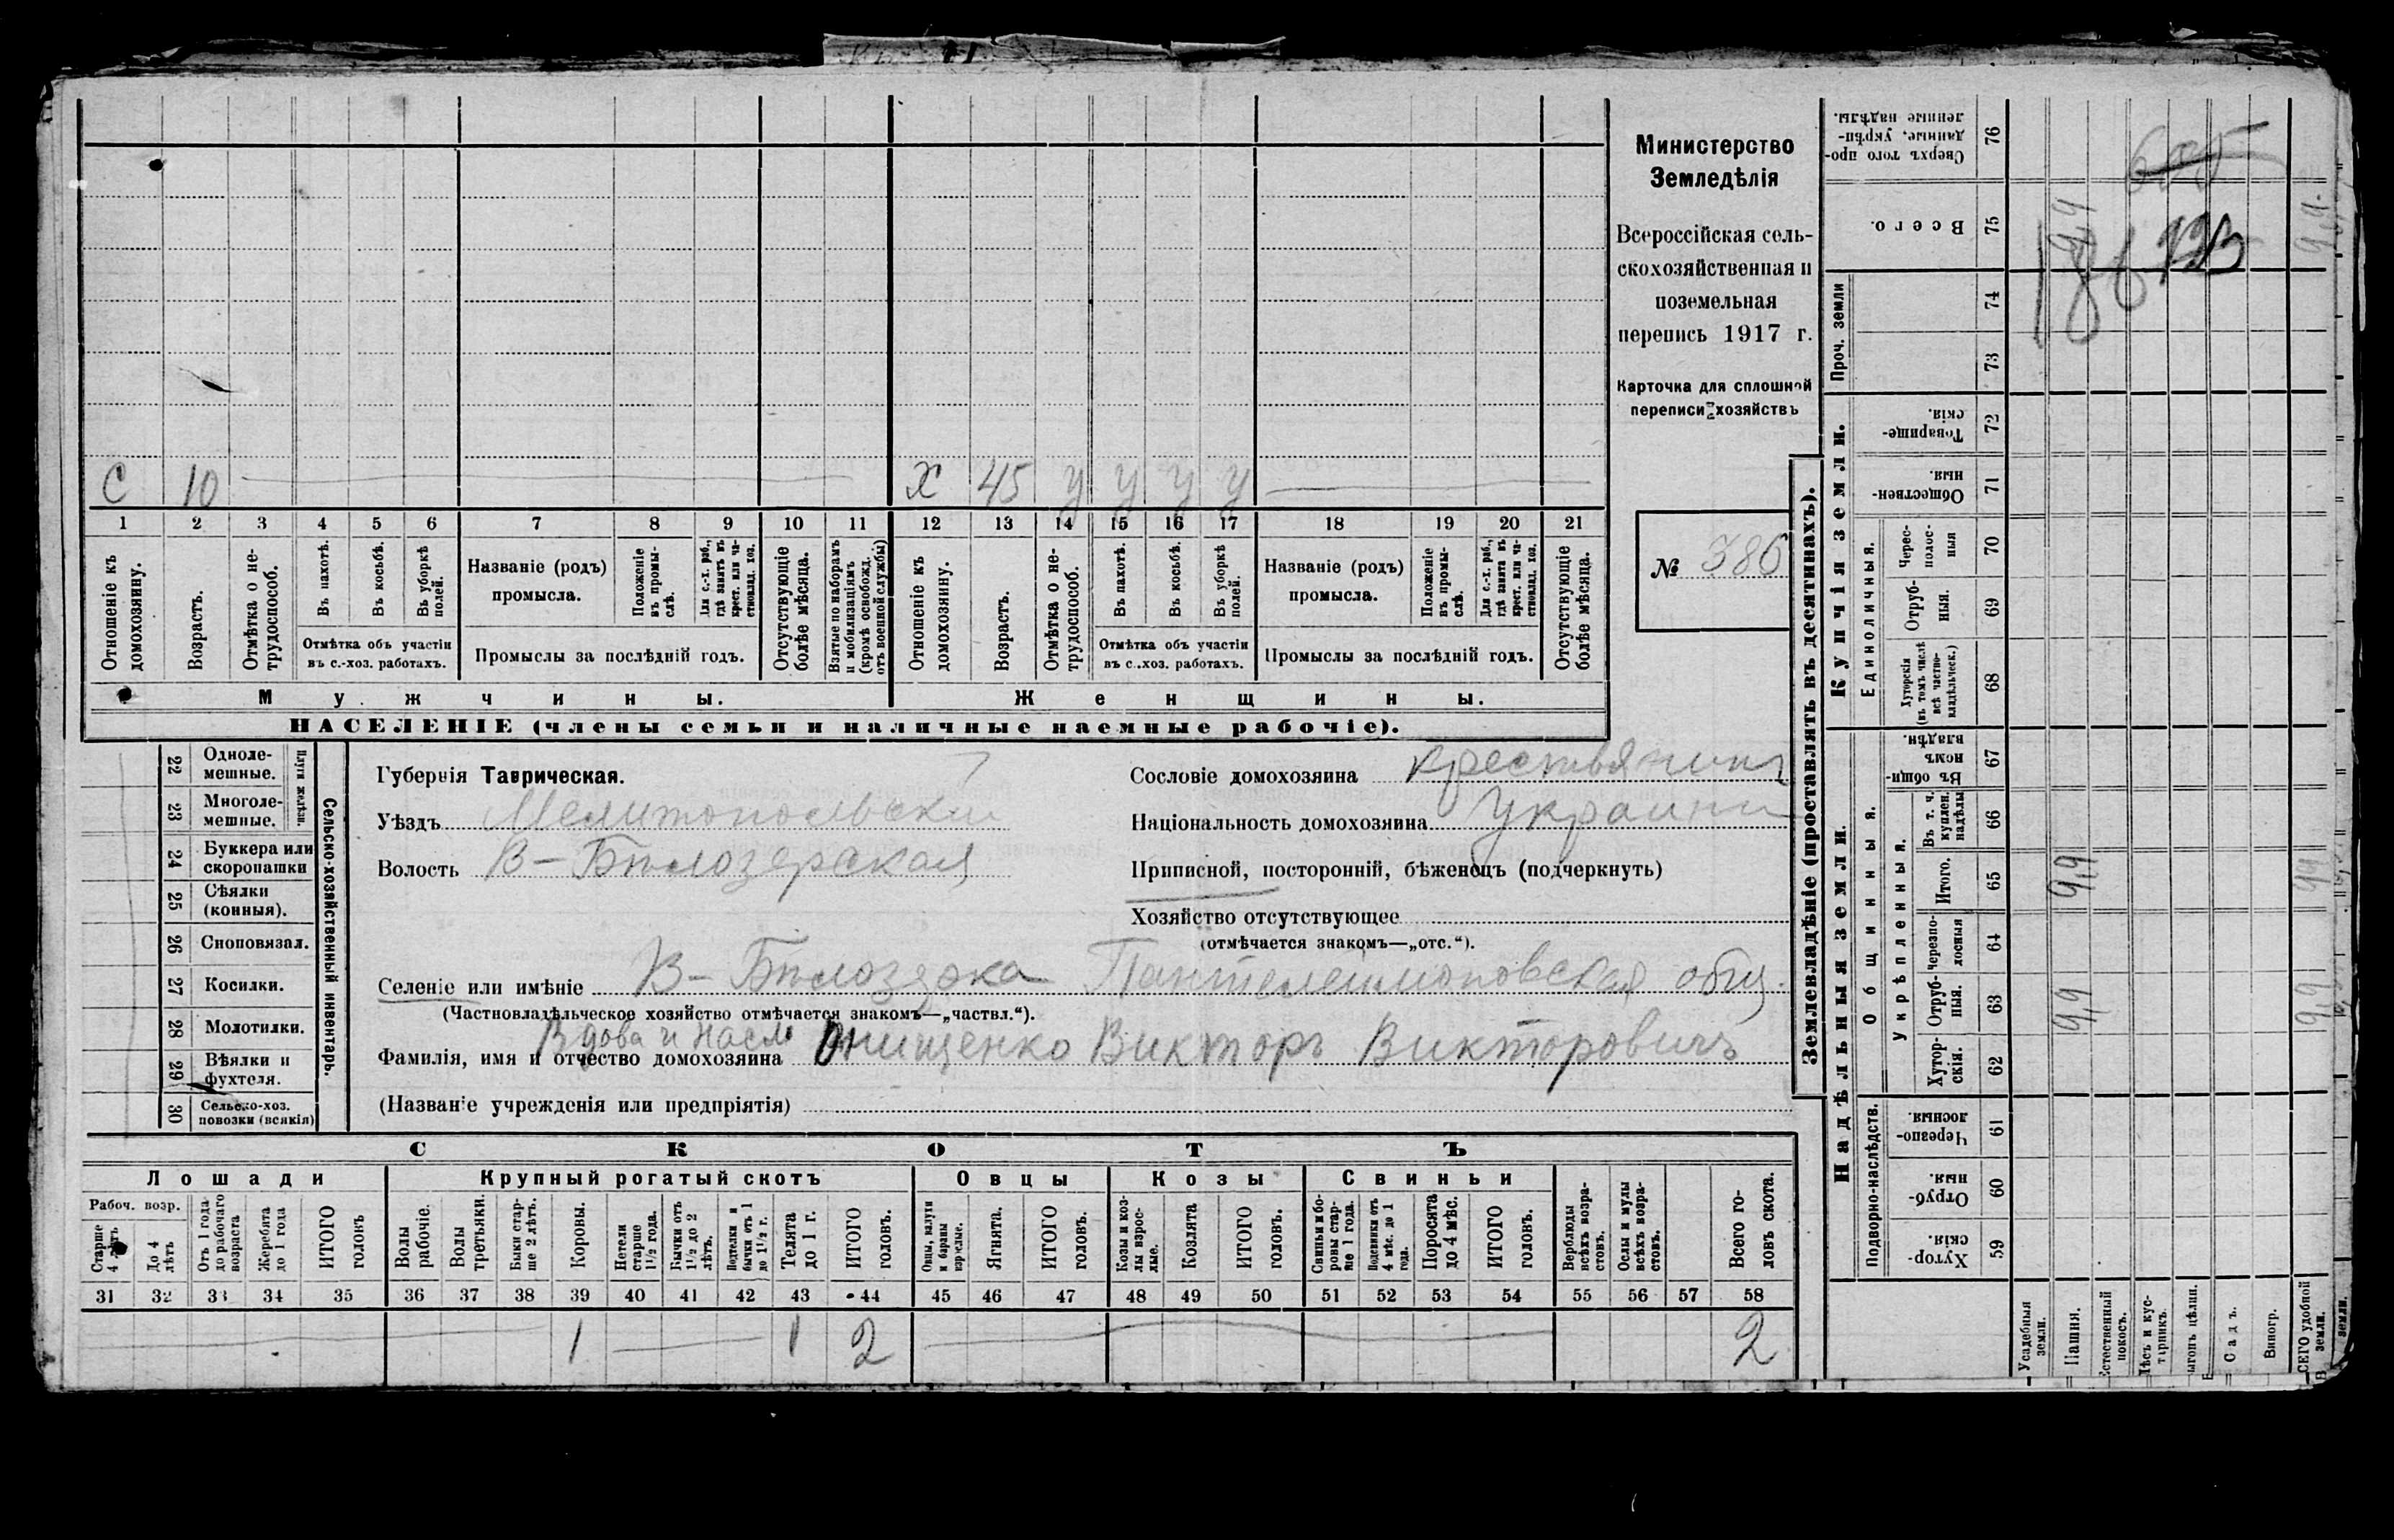 Министерство
Земледѣлія
Всероссійская сель-
скохозяйственная и
поземельная
перепись 1917 г.
Карточка для сплошной
переписи хозяйствъ
№ 386
С 10 Х 45 у у у у
1 2 3 4 5 6 7 8 9 10 11 12 13 14 15 16 17 18 19 20 21
Отношеніе къ домохозяину.
Возрастъ.
Отмѣтка о не-трудоспособ.
Въ пахотѣ.
Въ косьбѣ.
Въ уборкѣ полей.
Отмѣтка объ участіи
въ с.-хоз. работахъ.
Названіе (родъ)
промысла.
Положеніе въ промы-слѣ.
Для с.-х. раб., гдѣ занятъ въ крест. или ча-стновлад. хоз.
Промыслы за послѣдній годъ.
Отсутствующіе болѣе мѣсяца.
Взятые по наборамъ и мобилизаціямъ (кромѣ освобожд. отъ военной службы)
Отношеніе къ домохозяину.
Возрастъ.
Отмѣтка о не-трудоспособ.
Въ пахотѣ.
Въ косьбѣ.
Въ уборкѣ полей.
Отмѣтка объ участіи
въ с.-хоз. работахъ.
Названіе (родъ)
промысла.
Положеніе въ промы-слѣ.
Для с.-х. раб., гдѣ занятъ въ крест. или ча-стновлад. хоз.
Промыслы за послѣдній годъ.
Отсутствующіе болѣе мѣсяца.
Мужчины. Женщины.
НАСЕЛЕНІЕ (члены семьи и наличные наемные рабочіе).
22 Одноле-мешные.
23 Многоле-мешные.
Плуги желѣзн.
24 Буккера или скоропашки
25 Сѣялки (конныя).
26 Сноповязал.
27 Косилки.
28 Молотилки.
29 Вѣялки и фухтеля.
30 Сельско-хоз. повозки (всякія)
Сельско-хозяйственный инвентарь.
Губернія Таврическая.
Уѣздъ Мелитопольский
Волость В-Бѣлозерская
Сословіе домохозяина крестьянинъ
Національность домохозяина Украинц
Приписной, посторонній, бѣженецъ (подчеркнуть)
Хозяйство отсутствующее
(отмѣчается знакомъ—„отс.“).
Селеніе или имѣніе В-Бѣлозерка Пантелеимоновская общ.
(Частновладѣльческое хозяйство отмѣчается знакомъ—„частвл.“).
Вдова и насл
Фамилія, имя и отчество домохозяина Онищенко Викторъ Викторовичъ
(Названіе учрежденія или предпріятія)
СКОТЪ
Лошади Крупный рогатый скотъ Овцы Козы Свиньи
Рабоч. возр.
Старше 4 лѣтъ
До 4 лѣтъ
Отъ 1 года до рабочаго возраста
Жеребята до 1 года
ИТОГО головъ
Волы рабочіе.
Волы третьяки.
Быки стар-ше 2 лѣтъ.
Коровы.
Нетели старше 1½ года.
Бычки отъ 1½ до 2 лѣтъ.
Подтелки и бычки отъ 1 до 1½ г.
Телята до 1 г.
ИТОГО головъ.
Овцы, валухи и бараны взрослые.
Ягнята.
ИТОГО головъ.
Козы и коз-лы взрос-лые.
Козлята
ИТОГО головъ.
Свиньи и бо-ровы стар-ше 1 года.
Подсвинки отъ 4 мѣс. до 1 года.
Поросята до 4 мѣс.
ИТОГО головъ.
Верблюды всѣхъ возра-стовъ.
Ослы и мулы всѣхъ возра-стовъ.
Всего го-ловъ скота.
31 32 33 34 35 36 37 38 39 40 41 42 43 44 45 46 47 48 49 50 51 52 53 54 55 56 57 58
1 1 2 2
Землевладѣніе (проставлять въ десятинахъ).
Надѣльныя земли.
Купчія земли.
Проч. земли
Подворно-наслѣдств.
Общинныя.
Укрѣпленныя.
Единоличныя.
Сверхъ того про-данные, укрѣп-ленные надѣлы. 76
Всего. 75
74
73
Товарище-скія. 72
Обществен-ныя. 71
Черес-полос-ныя 70
Отруб-ныя. 69
Хуторскія (въ томъ числѣ всѣ частно-владѣльческ.) 68
Въ общи-номъ владѣн. 67
Въ т. ч. куплен. надѣлы 66
Итого. 65
Черезпо-лосныя 64
Отруб-ныя. 63
Хутор-скія. 62
Черезпо-лосныя. 61
Отруб-ныя. 60
Хутор-скія. 59
Усадебныя земли.
Пашня. 9,9 9,9 9,9
Естественный покосъ.
Лѣсъ и кус-тарникъ.
Садъ.
Виногр.
ВСЕГО удобной земли. 9,9 9,9